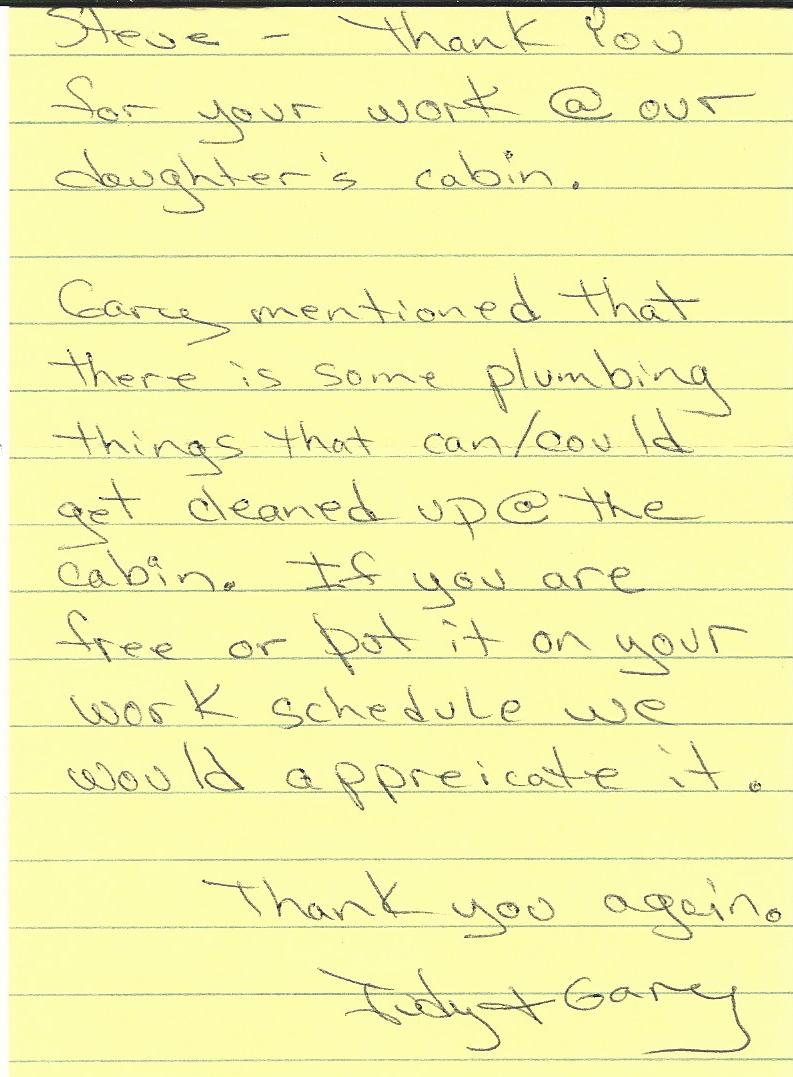 Steve - Thank You
for your work @ our
daughter's cabin.
Gary mentioned that
there is some plumbing
things that can/could
get cleaned up @ the
cabin. If you are
free or put it on your
work schedule we
would appreicate it.
Thank you again.
Judy + Gary